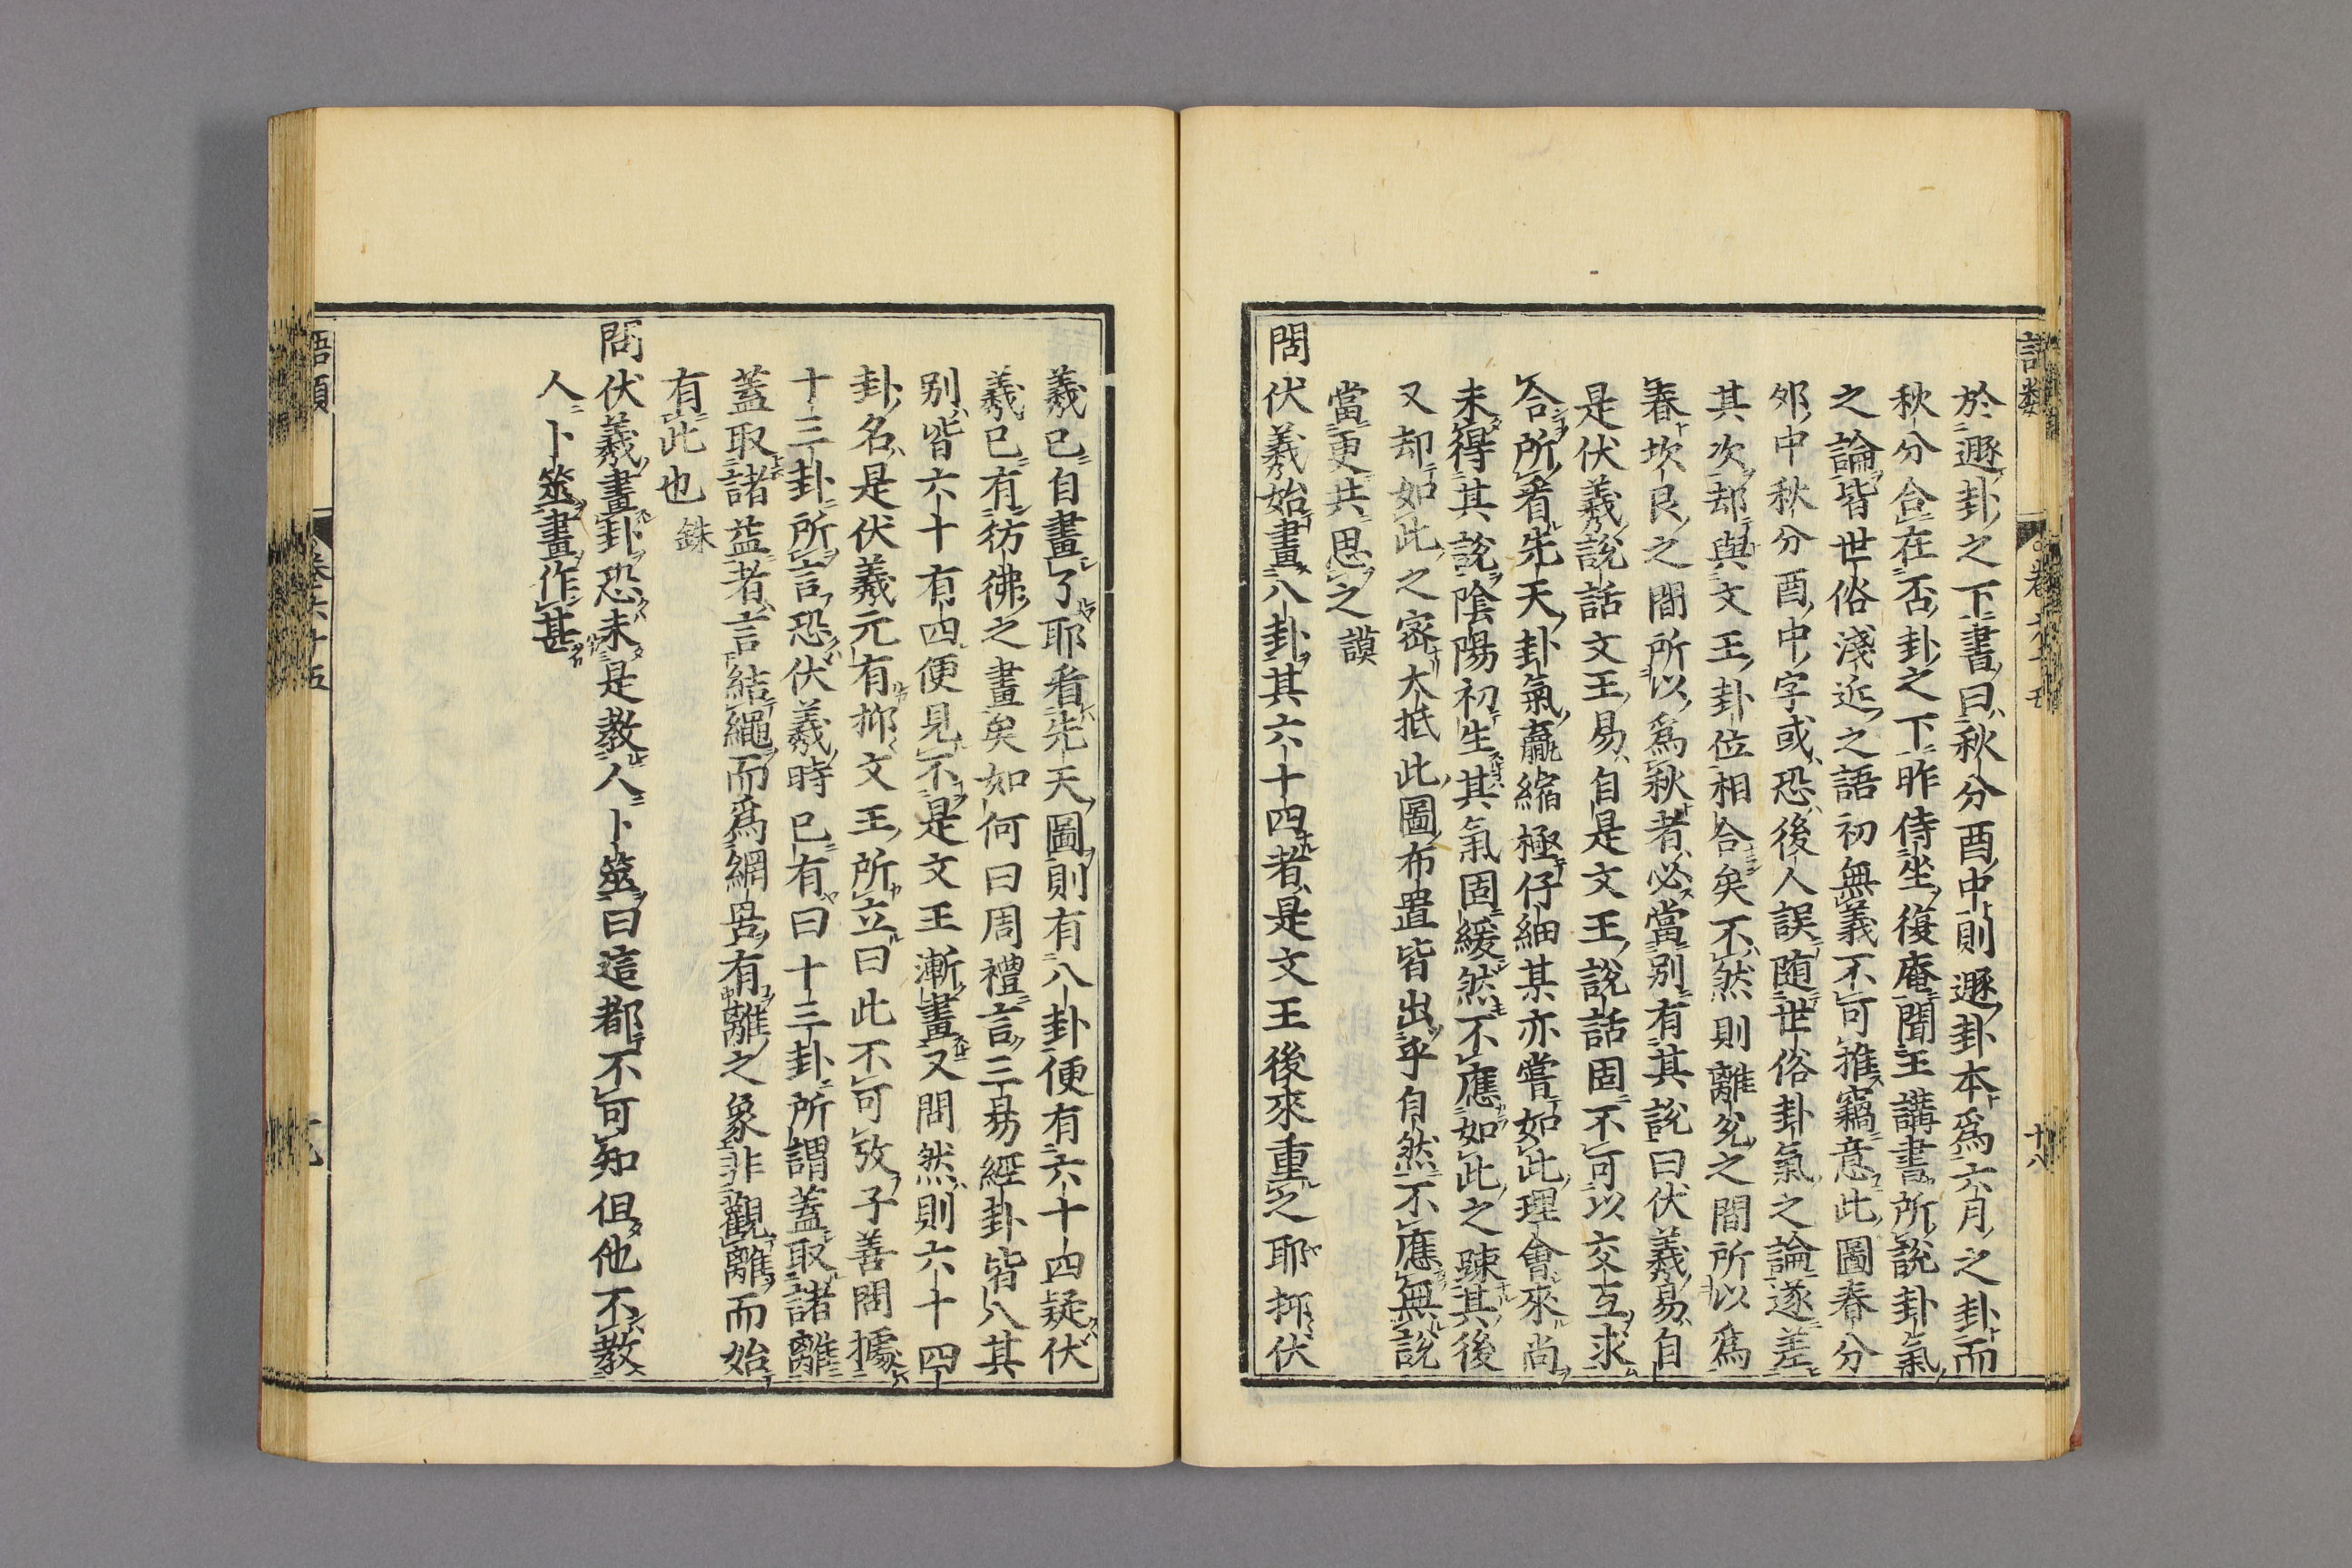 語類
卷六十五
十八
於遯卦之下書曰秋分酉中則遯卦本爲六月之卦而
秋分合在否卦之下昨侍坐復庵聞王講書所說卦氣
之論皆世俗淺近之語初無義不可推竊意此圖春分
夘中秋分酉中字或恐後人誤随世俗卦氣之論遂差
其次却與文王卦位相合矣不然則離兊之間所以爲
春坎艮之間所以爲秋者必當别有其說曰伏羲易自
是伏羲說話文王易自是文王說話固不可以交互求
合所看先天卦氣贏縮極仔細某亦嘗如此理會來尚
未得其說陰陽初生其氣固緩然不應如此之踈其後
又却如此之密大抵此圖布置皆出乎自然不應無說
當更共思之 謨
問伏羲始畫八卦其六十四者是文王後來重之耶抑伏
羲已自畫了耶看先天圖則有八卦便有六十四疑伏
羲已有彷彿之畫矣如何曰周禮言三易經卦皆八其
别皆六十有四便見不是文王漸畫又問然則六十四
卦名是伏羲元有抑文王所立曰此不可攷子善問據
十三卦所言恐伏羲時已有曰十三卦所謂蓋取諸離
蓋取諸益者言結繩而爲網罟有離之象非觀離而始
有此也 銖
問伏羲畫卦恐未是教人卜筮曰這都不可知但他不教
人卜筮畫作甚
語類
卷六十五